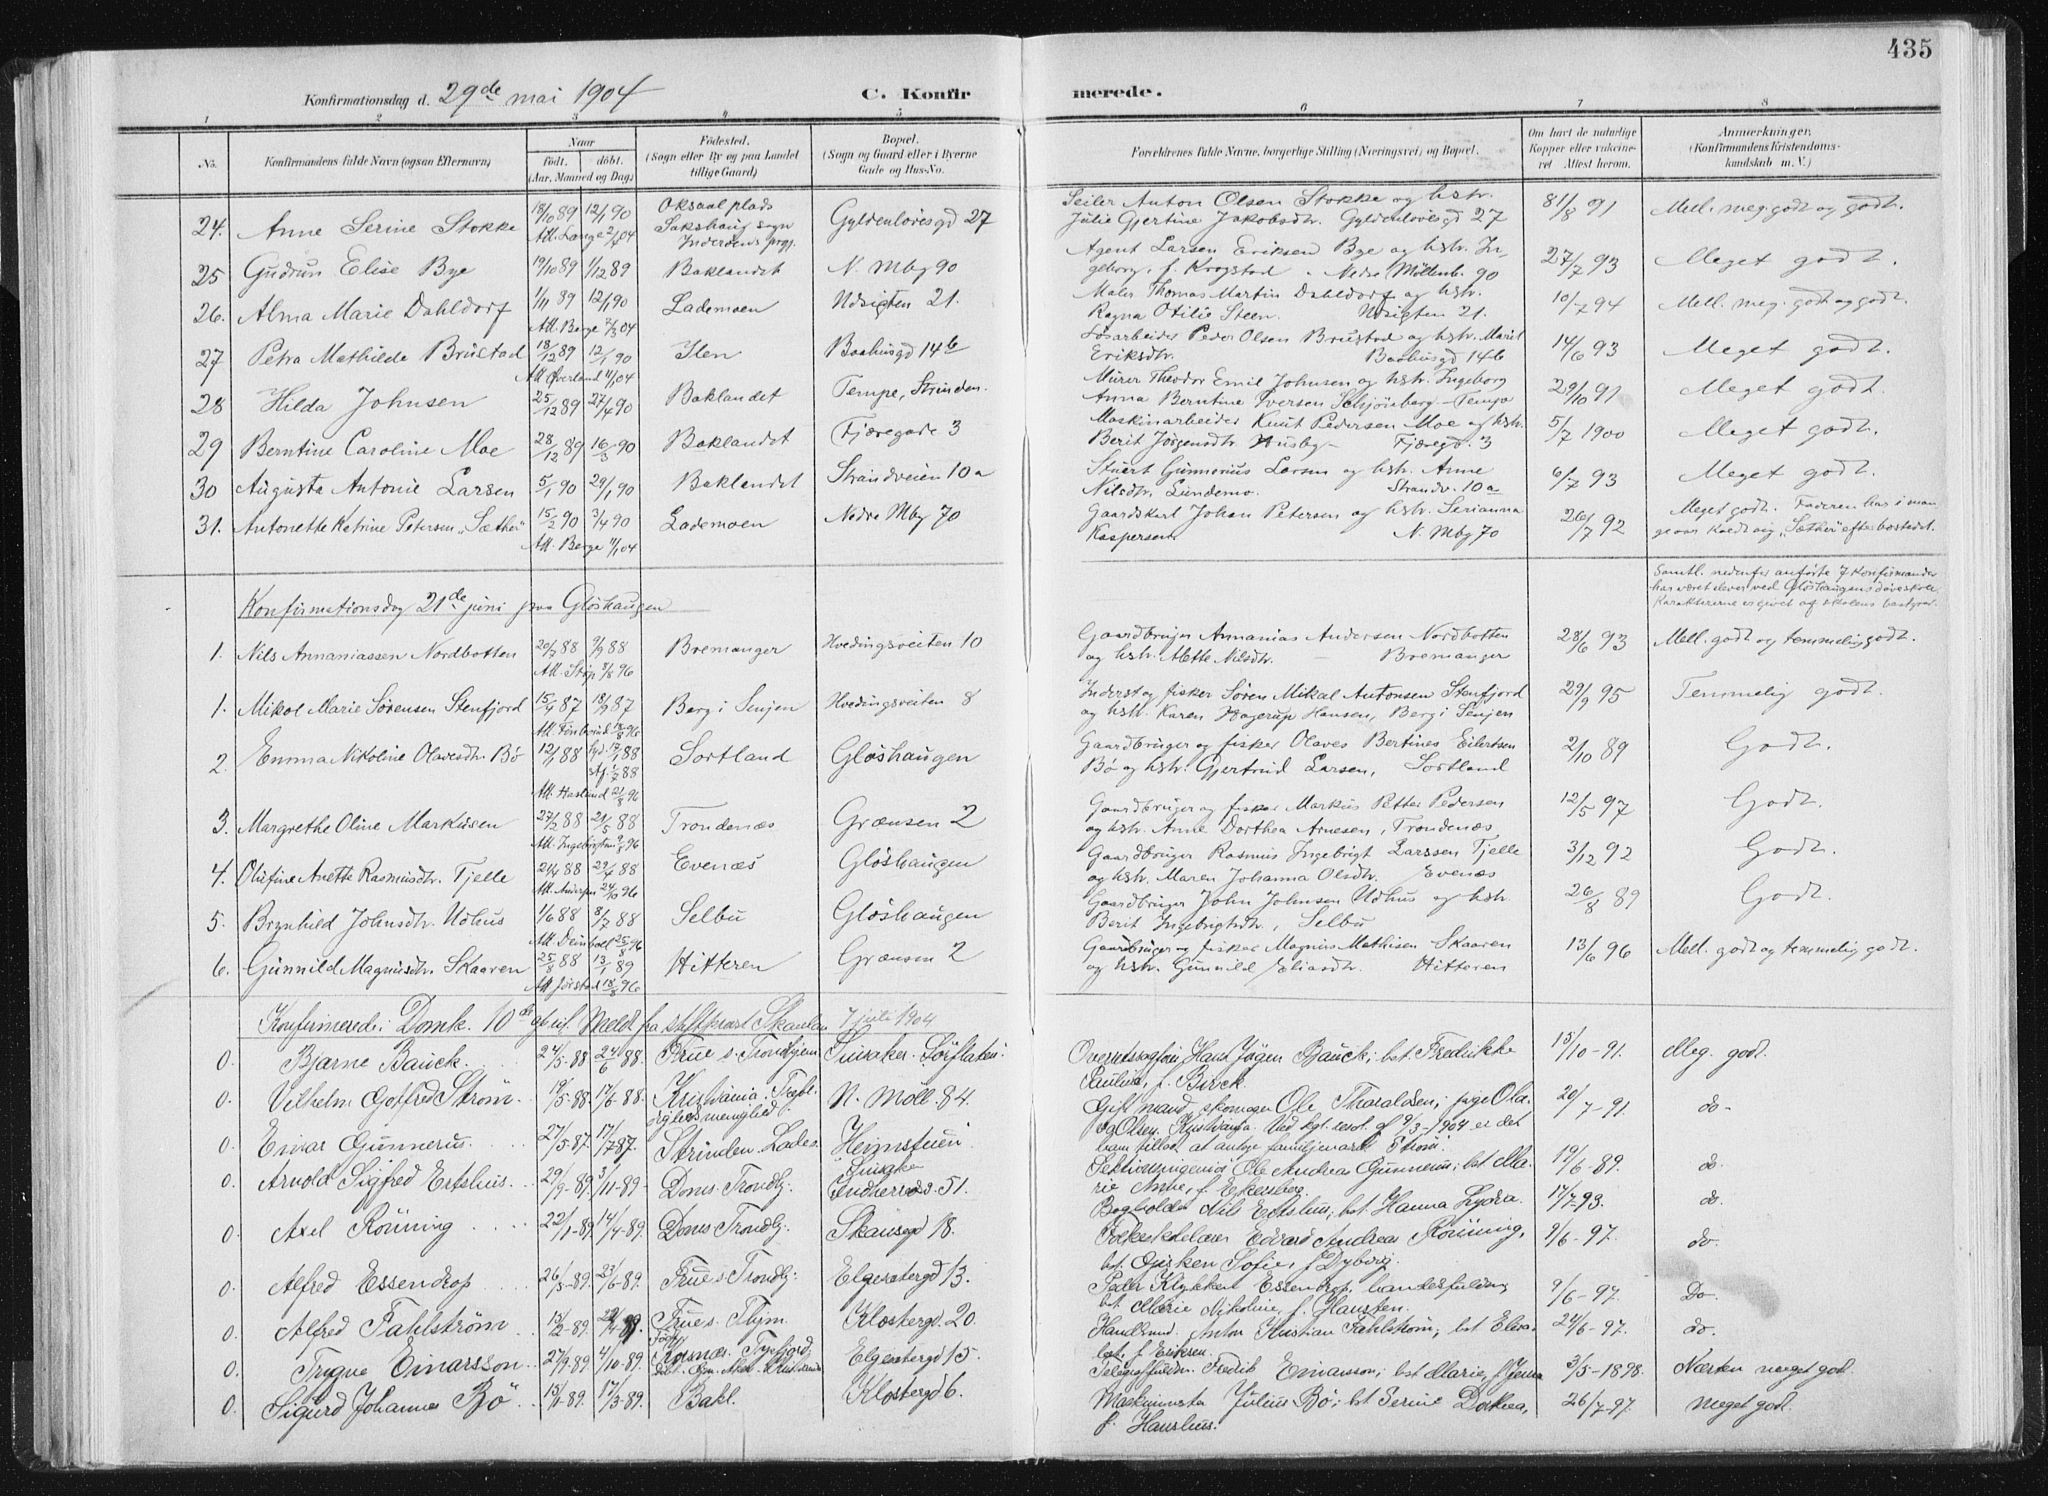 435
Konfirmationsdag d. 29de mai 1904
C. Konfirmerede.
1 2 3 4 5 6 7 8
No. Konfirmandens fulde Navn (ogsaa Efternavn) Naar født. døbt. (Aar, Maaned og Dag) Fødested. (Sogn eller By og paa Landet tillige Gaard) Bopæl. (Sogn og Gaard eller i Byerne Gade og Hus-No. Forældrenes fulde Navne, borgerlige Stilling (Næringsvei) og Bopæl. Om havt de naturlige Kopper eller vakcineret Attest herom. Anmærkninger. (Konfirmandens Kristendomskundskab m. V.)
24. Anne Serine Stokke 18/10 89 12/1 90 Oksaal plads Sakshaug sogn Inderøens prgj. Gyldenløvesgd 27 Seiler Anton Olsen Stokke og hstr. 81/8 91 Mell. meg. godt og godt.
Att. Lange 2/4 04 Julie Gjertine Jakobsdtr. Gyldenløvesgd 27
25 Gudrun Elise Bye 19/10 89 1/12 89 Baklandet N. Mbg 90 Agent Larsen Eriksen Bye og hstr. In- 27/7 93 Meget godt.
geborg, f. Krogstad - Nedre Möllenb. 90
26. Alma Marie Dahldorf 1/11 89 12/1 90 Lademoen Udsigten 21. Maler Thomas Martin Dahldorf og hstr. 10/7 94 Mell. meg. godt og godt.
Att. Berge 2/3 04 Ragna Otilie Steen. Udsigten 21.
27 Petra Mathilde Brustad 18/12 89 12/1 90 Ilen Baahusgd 14b Løsarbeider Peder Olsen Brustad og hstr. Marit 14/6 93 Meget godt.
Att Øverland 11/1 04 Eriksdtr. Baahusgd 14b
28 Hilda Johnsen 25/12 89 27/4 90 Baklandet Tempe, Strinden. Murer Theodor Emil Johnsen og hstr. Ingeborg 29/10 91 Meget godt.
Anna Berntine Iversen Schjønberg - Tempe
29 Berntine Caroline Moe 28/12 89 16/3 90 Baklandet Fjæregade 3 Maskinarbeider Knut Pedersen Moe og hstr. 5/7 1900 Meget godt.
Berit Jørgensdtr. Husby - Fjæregd. 3
30 Augusta Antonie Larsen 5/1 90 29/1 90 Baklandet Strandveien 10a Stuert Gunnerius Larsen og hstr. Anne 6/7 93 Meget godt.
Nilsdtr. Lundemo. Strandv. 10a
31. Antonette Katrine Petersen „Sæther" 15/2 90 3/4 90 Lademoen Nedre Mbg 70 Gaardskarl Johan Petersen og hstr. Serianna 26/7 92 Meget godt. Faderen har i man
Att. Berge 11/1 04 Kaspersen N. Mbg 70 ge aar kaldt sig „Sæther" efter bostedet.
Konfirmationsdag 21de juni paa Gløshaugen
Samtl. nedenfor anførte 7 Konfirmander
har været elever ved Gløshaugens døveskole.
Karaktererne er givet af skolens bestyrer.
1. Nils Annaniassen Nordbotten 20/7 88 9/9 88 Bremanger Hvedingsveiten 10 Gaardbruger Annanias Andersen Nordbotten 28/6 93 Mell. godt og temmelig godt.
og hstr. Mette Nilsdtr. Bremanger
1. Mikal Marie Sørensen Stenfjord 15/4 87 18/9 87 Berg i Senjen Hvedingsveiten 8 Inderst og fisker Søren Mikal Antonsen Stenfjord 29/9 95 Temmelig godt.
og hstr. Karen Hagerup Hansen, Berg i Senjen
2. Emma Nikoline Olavesdtr. Bø 12/1 88 Sortland Gløshaugen Gaardbruger og fisker Olaves Bertines Eilertsen 2/10 89 Godt.
Att. Haslund 21/8 96 Bø og hstr. Gjertrud Larsen, Sortland
3. Margrethe Oline Markusen 27/2 88 21/5 88 Trondenæs Grænsen 2 Gaardbruger og fisker Markus Petter Pedersen 12/5 97 Godt.
og hstr. Anne Dorthea Arnesen, Trondenæs
4. Olufine Anette Rasmusdtr. Tjelle 21/4 88 Evenæs Gløshaugen Gaardbruger Rasmus Ingebrigt Larssen Tjelle 3/12 92 Godt.
og hstr. Maren Johanna Olsdtr. Evenæs
5. Brynhild Johnsdtr. Udhus 1/6 88 8/7 88 Selbu Gløshaugen Gaardbruger John Johnsen Udhus og hstr. 26/8 89 Godt.
Berit Ingebrigtsdtr., Selbu
6. Gunnild Magnusdtr. Skaaren 25/8 88 13/1 89 Hitteren Grænsen 2 Gaardbruger og fisker Magnus Mathisen Skaaren 13/6 96 Mell. godt og temmelig godt.
Att Jørstad 18/8 96 og hstr. Gunnild Eliasdtr. Hitteren
Konfirmerede i Domk. 10de Meldt fra stiftprovst Skaulan 7 juli 1904
0. Bjarne Bauck. 24/5-88 24/6 88. Frue s. Trondhjem Overretssagfører Hans Jørgen Bauck; hst. Fredrikke 15/10-91. Meg. godt.
Pauline, f. Birck.
0. Vilhelm Gotfred Strøm. 18/5-88. 17/6-88. Kristiania. N. Möll. 84. Gift mand, skomager Ole Tharaldsen; pige Ola- 20/7-91. do-
va Olsen, Kristiania. Ved kgl. resol. af 9/3-1904 er det
barn tilladt at antage familjenavnet Strøm.
0. Einar Gunnerus. 27/5-87 17/7 87. Strinden. Lades. Sektionsingeniør Ole Andreas Gunnerus; hst Ma- 19/6-89. do.
0. Arnold Sigfred Ertshus. 29/9-89 3/11-89. Doms. Trondhj. Indherredsv. 51. Bogholder Nils Ertshus; hst. Hanna Lydia. 17/7-93. do.
0. Axel Rönning 22/1-89. 14/4-89. Doms. Trondhj. Skansegd 18. Folkeskolelærer Edvard Andreas Rönning, 9/6-97. do.
hst. Sofie, f. Dyborg.
0. Alfred Essendrop 26/5-89. 23/6-89. Frue s. Trondhj. Elgesetergd 13. Peder Klykken Essendrop, handelsfuldm. 9/6-97. Do-
hst. Marie Nikoline, f. Hansten.
0. Alfred Fahlström 15/2-89. Frue s. Thjm Klostergd. 20. Handlsmd. Anton Kristian Fahlstrøm; hst Elisa- 24/6-97. do.
bet, f. Eriksen.
0. Trygve Einarsson 27/9-89 4/10-89. Elgesetergd 15. Telegraffuldm. Fredrik Einarsson; hst Marie, f. 3/5-1898. Næsten meget godt.
0. Sigurd Johannes Bö 15/1-89. 17/3-89. Bakl. Klostergd 6. Maskinmester Julius Bö; hst Serine Dorthea, 26/7-97. meget godt.
f. Haushus.